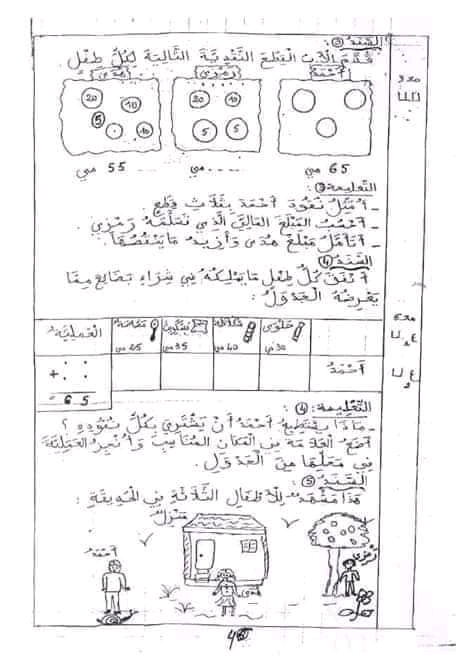 السند ③
قدم الأب القطع النقدية التالية لكل طفل
أحمد
رمزي
هدى
20
10
5
10
20
10
5
5
65 مي
.... مي
55 مي
التعليمة ③
ـ أمثل نقود أحمد بثلاث قطع.
ـ أحسب المبلغ المالي الذي تسلمه رمزي.
ـ أتأمل مبلغ هدى وأزيد ما ينقصها.
السند ④
أنفق كل طفل ما يملكه في شراء بضائع مما
يعرضه الجدول :
حلوى
30 مي
40 مي
35 مي
مصاصة
25 مي
العملية
أحمد
+ . .
= 65
التعليمة ④ :
ـ ماذا يستطيع أحمد أن يشتري بكل نقوده ؟
أضع العلامة في المكان المناسب وأنجز العملية
في محلها من الجدول.
السند ⑤
هذا مشهد للأطفال الثلاثة في الحديقة :
منزل
أحمد
رمزي
هدى